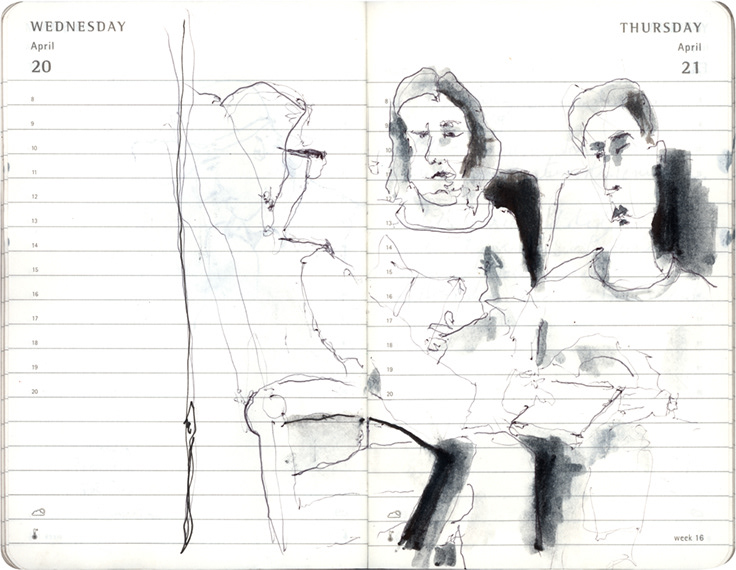 WEDNESDAY
April
20
8
9
10
11
12
13
14
15
16
17
18
19
20
THURSDAY
April
21
8
9
10
12
13
14
15
16
17
18
19
20
week 16